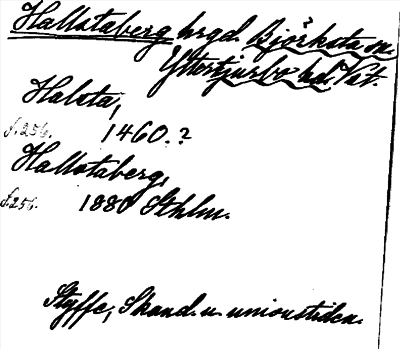 Hallstaberg hrgd. Björksta sn.
Yttertjurbo hd. Vst.
Halsta,
s. 256. 1460.?
Hallstaberg,
s. 256. 1880 Sthlm.
Styffe, Skand. u. unionstiden.